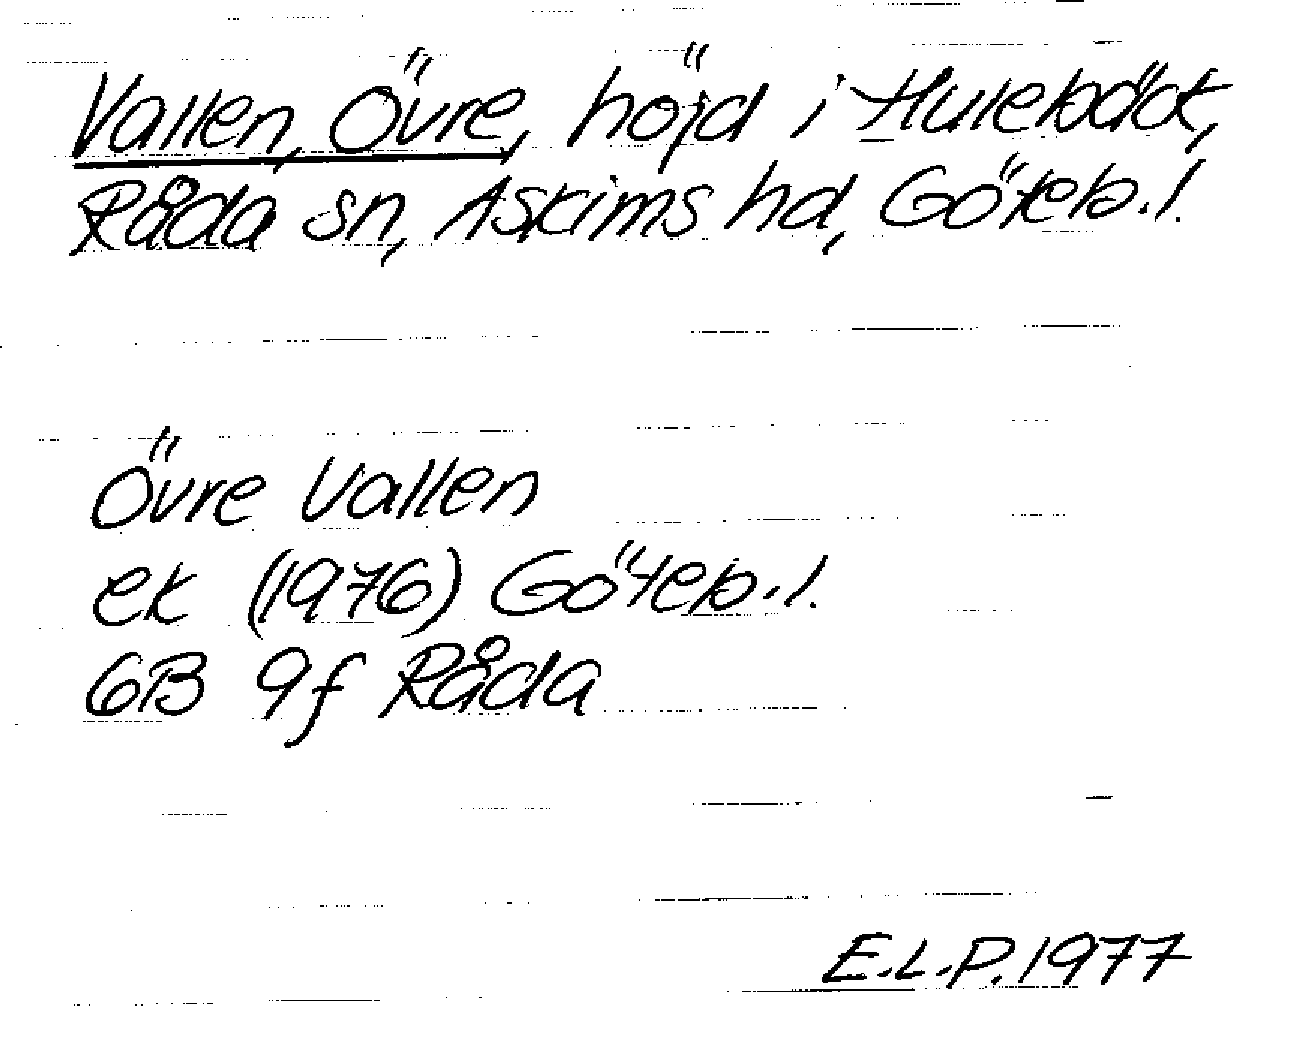 Vallen, Övre, höjd i Hulebäck,
Råda sn, Askims hd, Göteb.l.
Övre Vallen
ek (1976) Göteb.l.
6B 9f Råda
E.L.P. 1977